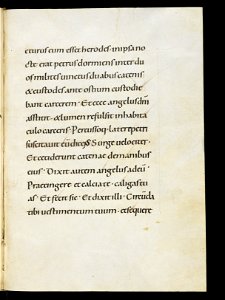 eturus cum esset herodes · inipsa no
cte erat petrus dormiens inter du
os milites uinctus duabus catenis
et custodes ante ostium custodie
bant carcerem · Et ecce angelus dni
asstitit · et lumen refulsit in habita
culo carceris · Percussoq; latere petri
suscitauit eu dicens · Surge uelociter ·
Et ceciderunt catenae de manibus
eius · Dixit autem angelus ad eu ·
Praecingere et calcia te caligas tu
as · Et fecit sic · Et dixit illi · Circuda
tibi uestimentum tuum · et sequere